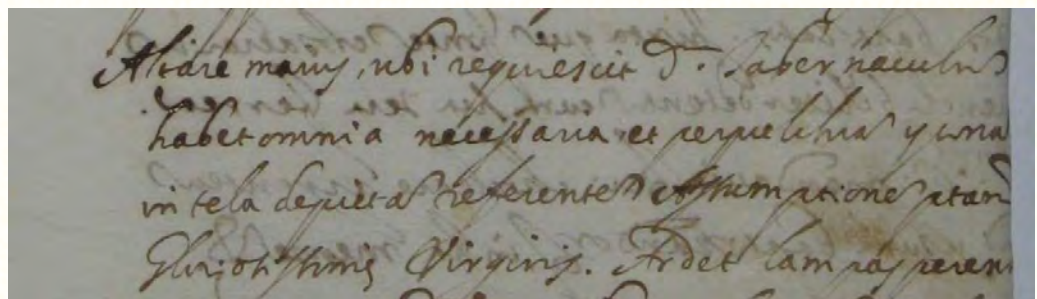 Altare maius, ubi requiescit d.m tabernaculũ
habet omnia necessaria et perpulchrã yconã
in tela depictã referentẽ Assumptionẽ ptam̃
Gloriosissimę Virginis. Ardet lampas peren